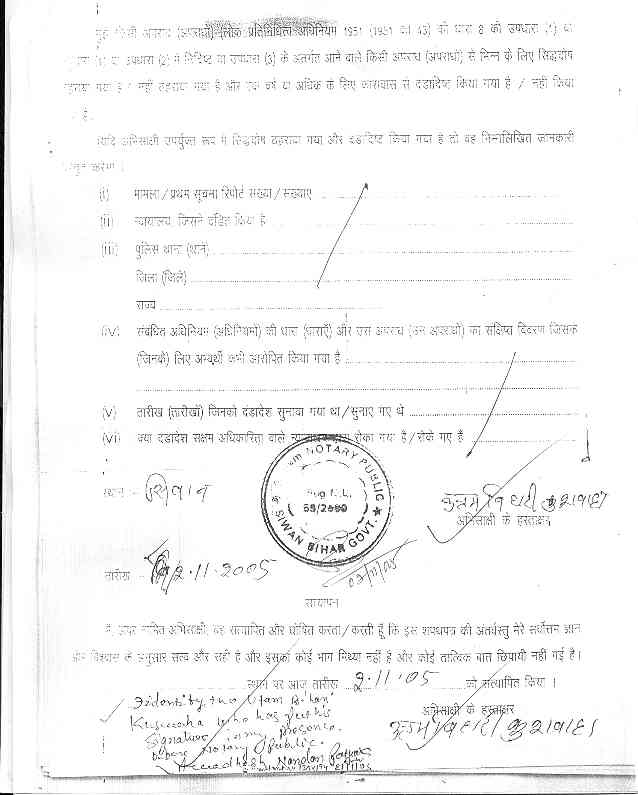 किसी अपराध (अपराधों) लोक प्रतिनिधित्व अधिनियम 1951 (1951 का 43) की धारा 8 की उपधारा (1) या
(1) या उपधारा (2) में निर्दिष्ट या उपधारा (3) के अंतर्गत आने वाले किसी अपराध (अपराधों) से भिन्न के लिए सिद्धदोष
ठहराया गया है / नहीं ठहराया गया है और एक वर्ष या अधिक के लिए कारावास से दंडादिष्ट किया गया है / नहीं किया
है.
यदि अभिसाक्षी उपर्युक्त रूप में सिद्धदोष ठहराया गया और दंडादिष्ट किया गया है तो वह निम्नलिखित जानकारी
करेगा :
(i) मामला / प्रथम सूचना रिपोर्ट संख्या / संख्याएं
(ii) न्यायालय जिसने दंडित किया है
(iii) पुलिस थाना (थाने)
जिला (जिले)
राज्य
(iv) संबंधित अधिनियम (अधिनियमों) की धारा (धाराएँ) और उस अपराध (उन अपराधों) का संक्षिप्त विवरण जिसके
(जिनके) लिए अभ्यर्थी को आरोपित किया गया है
(v) तारीख (तारीखें) जिनको दंडादेश सुनाया गया था / सुनाए गए थे
(vi) क्या दंडादेश सक्षम अधिकारिता वाले रोका गया है / रोके गए हैं
NOTARY PUBLIC
SIWAN BIHAR GOVT.
स्थान :- सिवान
अभिसाक्षी के हस्ताक्षर
तारीख :- 2.11.2005
02/11/05
सत्यापन
मैं, ऊपर नामित अभिसाक्षी, यह सत्यापित और घोषित करता / करती हूँ कि इस शपथपत्र की अंतर्वस्तु मेरे सर्वोत्तम ज्ञान
और विश्वास के अनुसार सत्य और सही है और इसका कोई भाग मिथ्या नहीं है और कोई तात्विक बात छिपायी नहीं गई है।
स्थान पर आज तारीख 2.11.05 को सत्यापित किया ।
अभिसाक्षी के हस्ताक्षर
Kushwaha who has put his
Signature in my presence
before Notary Public.
Awadhesh Nandan